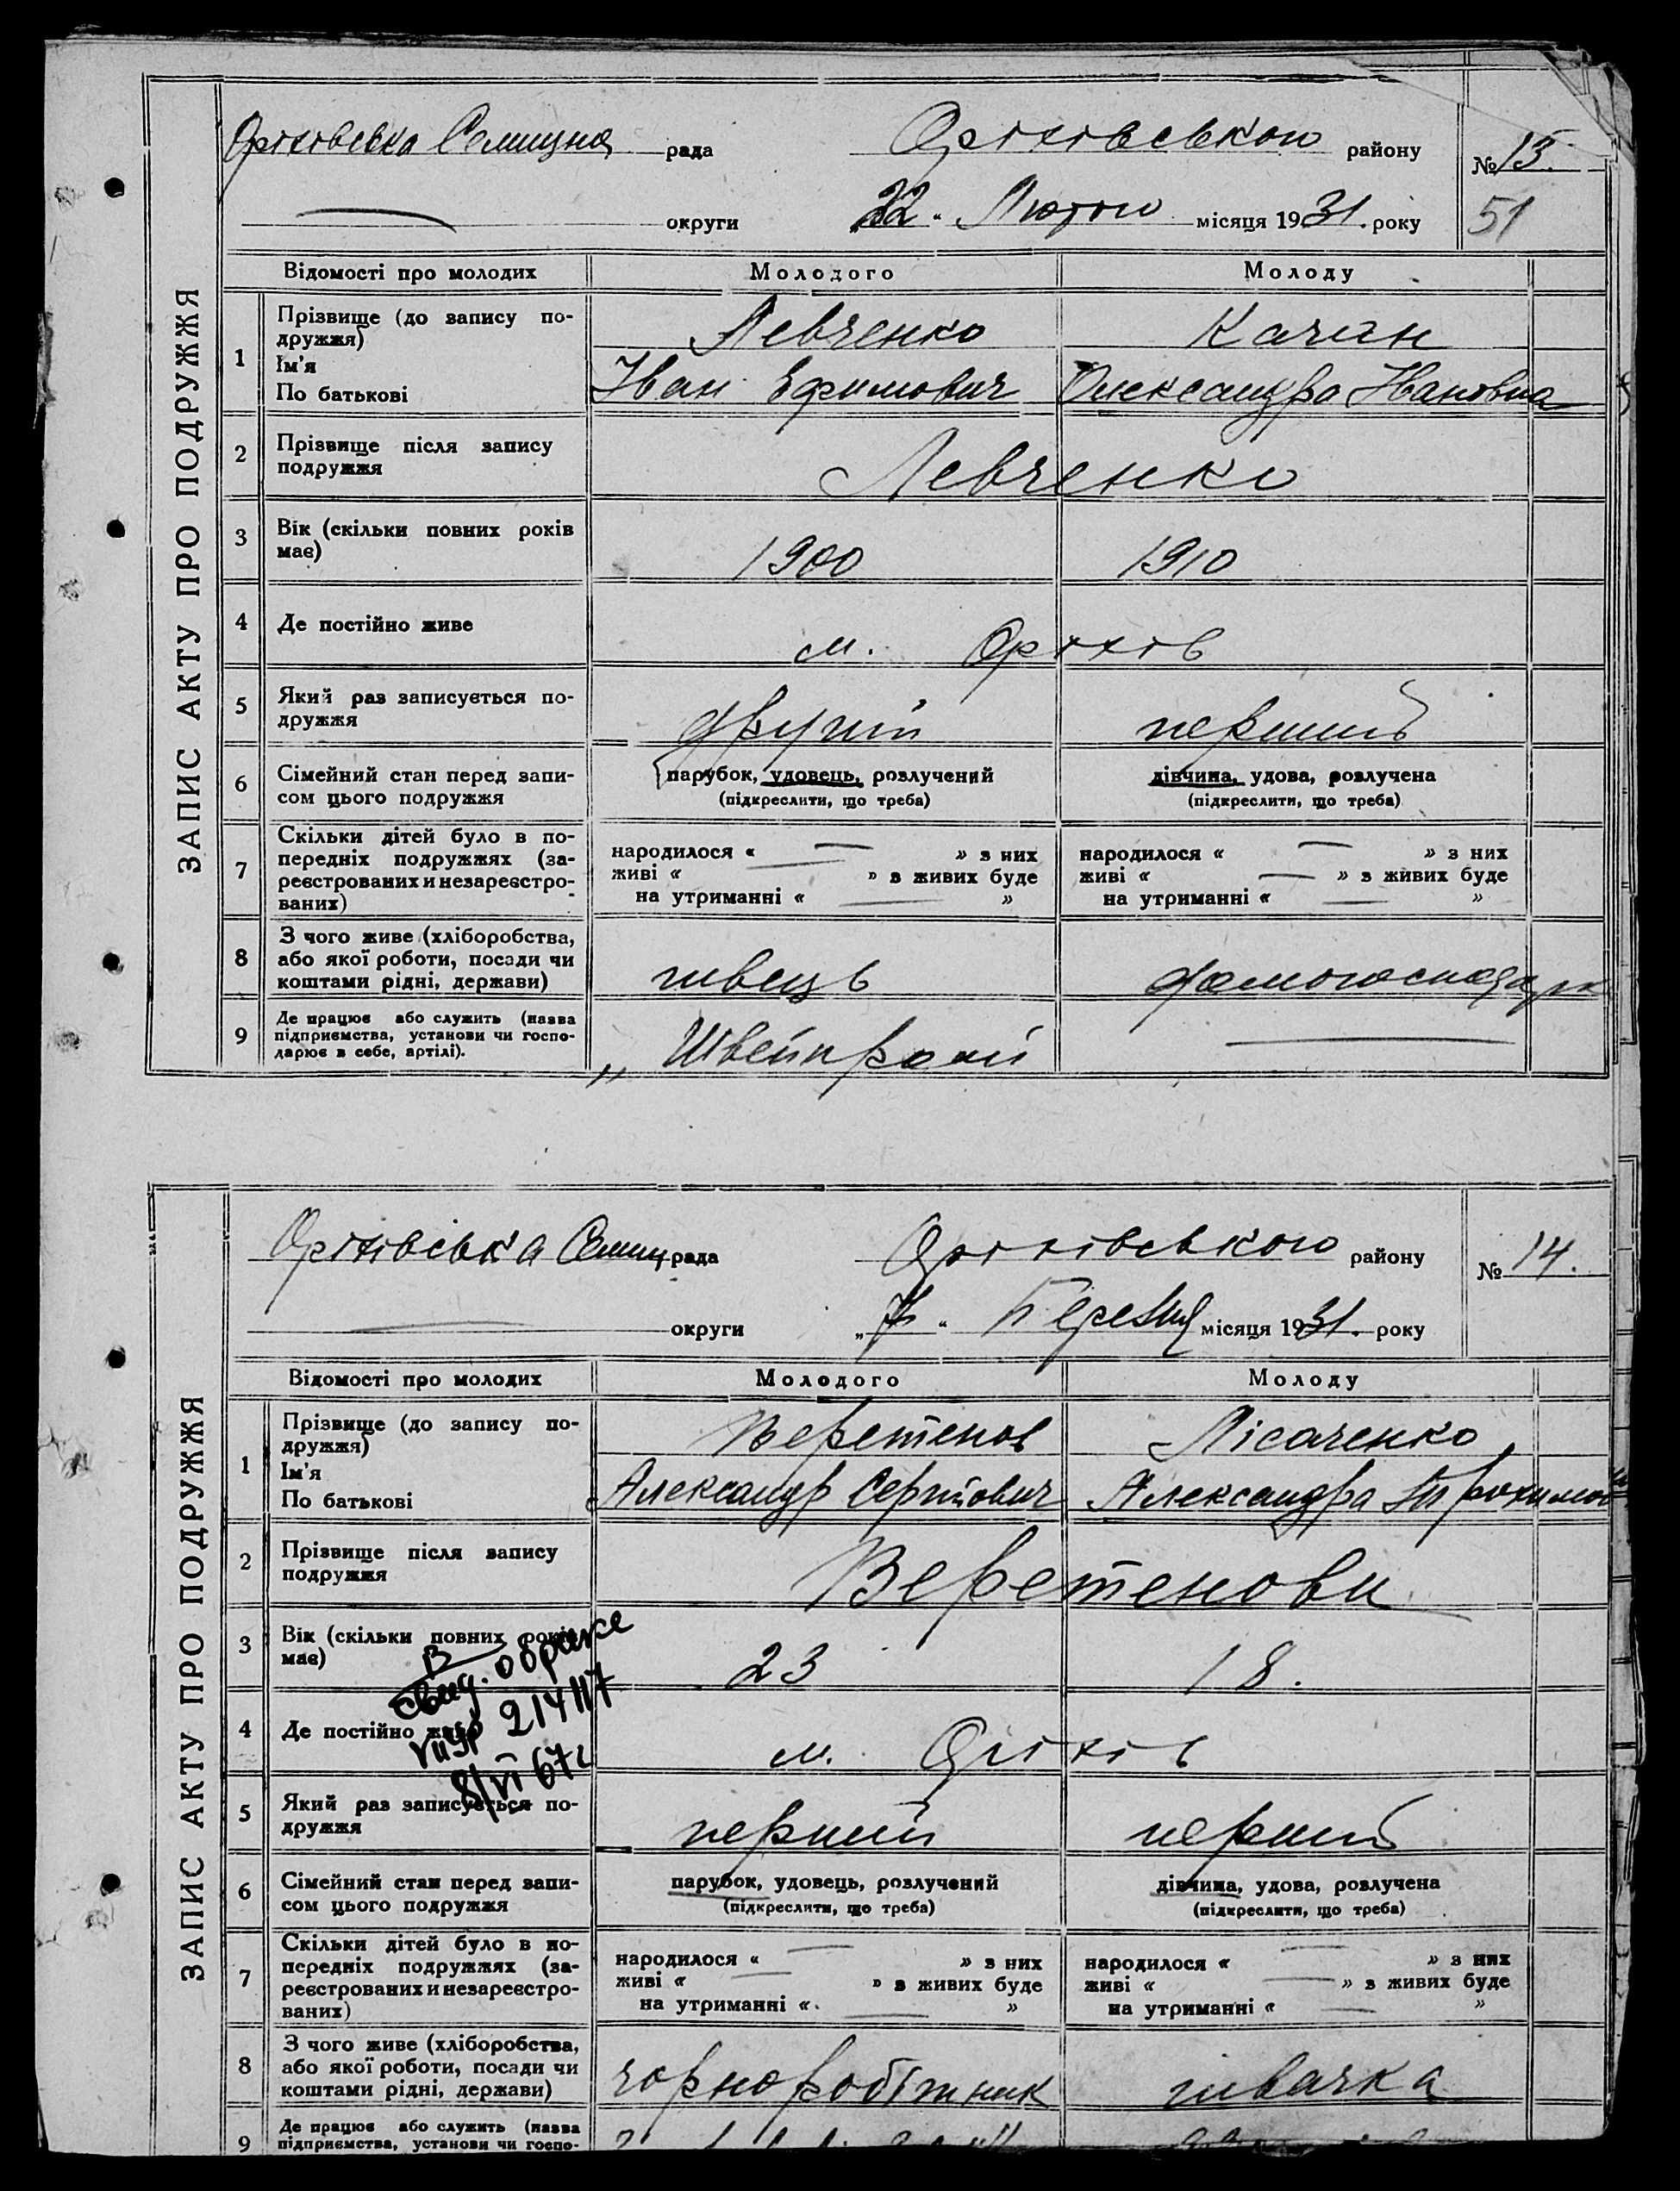 ЗАПИС АКТУ ПРО ПОДРУЖЖЯ
Оріхівська Селищна рада Оріхівського району № 13.
округи „22“ Лютого місяця 1931. року 51
Відомості про молодих Молодого Молоду
1 Прізвище (до запису по-
дружжя) Левченко Качан
Ім'я
По батькові Іван Єфимович Олександра Ивановна
2 Прізвище після запису
подружжя Левченко
3 Вік (скільки повних років
має) 1900 1910
4 Де постійно живе м. Оріхів
5 Який раз записується по-
дружжя другий перший
6 Сімейний стан перед запи-
сом цього подружжя
парубок, удовець, розлучений дівчина, удова, розлучена
(підкреслити, що треба) (підкреслити, що треба)
7 Скільки дітей було в по-
передніх подружжях (за-
реєстрованих и незареєстро-
ваних)
народилося « — » з них народилося « — » з них
живі « — » з живих буде живі « — » з живих буде
на утриманні « — » на утриманні « — »
8 З чого живе (хліборобства,
або якої роботи, посади чи
коштами рідні, держави) швець домогосподарк
9 Де працює або служить (назва
підприємства, установи чи госпо-
дарює в себе, артілі). „Швейпром —
ЗАПИС АКТУ ПРО ПОДРУЖЖЯ
Оріхівська Селищ рада Оріхівського району № 14.
округи „7“ Березня місяця 1931. року
Відомості про молодих Молодого Молоду
1 Прізвище (до запису по-
дружжя) Веретенов Лісаченко
Ім'я
По батькові Александр Сергійович Александра Трохимов
2 Прізвище після запису
подружжя Веретенови
3 Вік (скільки повних років
має) 23 18.
В
свид. о браке
214117
8/VI 67г
4 Де постійно живе м. Оріхів
5 Який раз записується по-
дружжя перший перший
6 Сімейний стан перед запи-
сом цього подружжя
парубок, удовець, розлучений дівчина, удова, розлучена
(підкреслити, що треба) (підкреслити, що треба)
7 Скільки дітей було в по-
передніх подружжях (за-
реєстрованих и незареєстро-
ваних)
народилося « — » з них народилося « — » з них
живі « — » з живих буде живі « — » з живих буде
на утриманні « — » на утриманні « — »
8 З чого живе (хліборобства,
або якої роботи, посади чи
коштами рідні, держави) чорноробітник швачка
9 Де працює або служить (назва
підприємства, установи чи госпо-